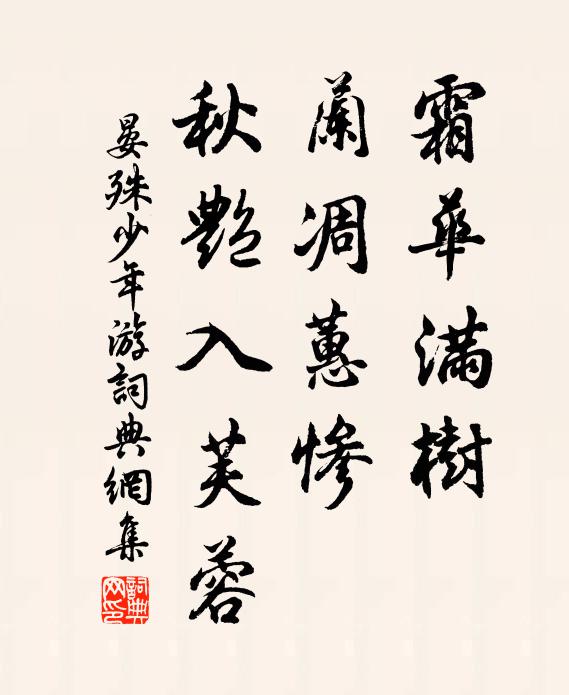 霜華滿樹
蘭凋蕙慘
秋艷入芙蓉
晏殊少年游詞典網集
詞典網印